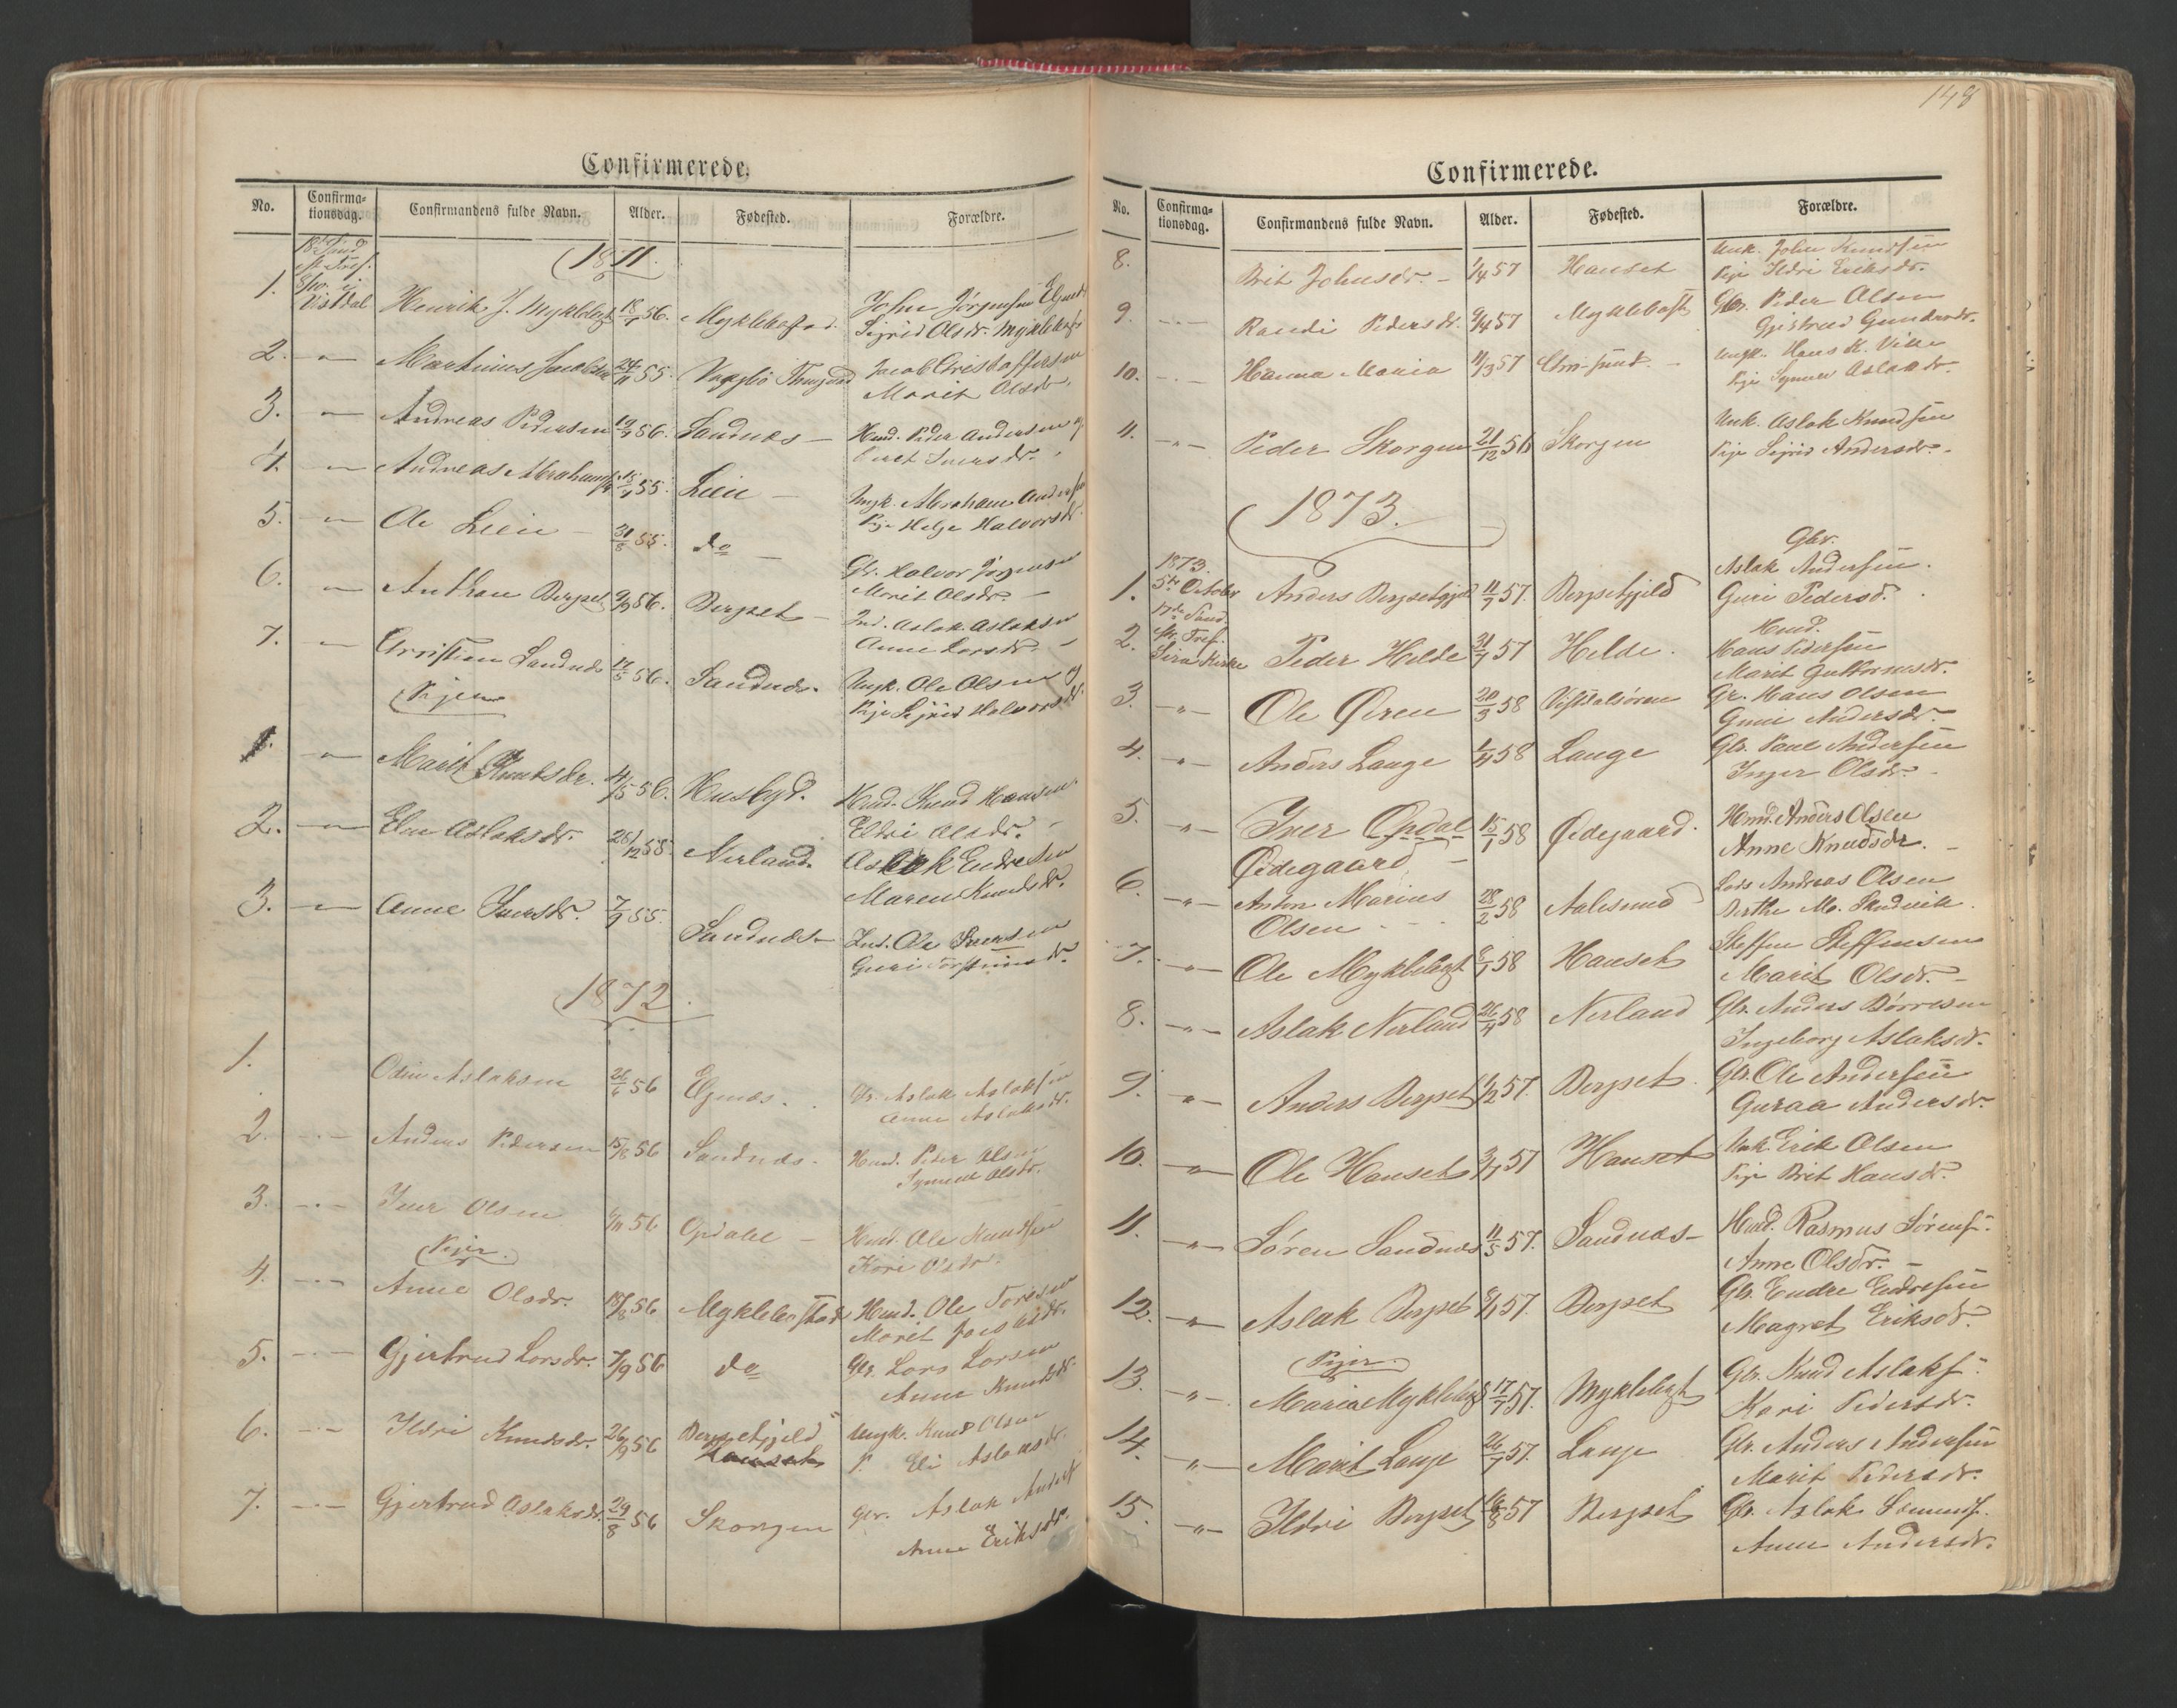 Confirmerede.
No. Confirma-tionsdag. Confirmandens fulde Navn. Alder. Fødested. Forældre.
1871.
18de Sønd
e. Tref.
8/10 i
Vistdal
1. Henrik J. Myklebgt 18/7 56. Myklebostad. John Jørgensen Elgnæs
Sigrid Olsdr. Myklebost
2. " Marthinus Jacobsen 24/11 55. Vaagbø Jacob Christoffersen
Marit Olsdr.
3. " Andreas Pedersen 56. Sandnæs Huusmd. Peder Andersen og
Beret Iversdr.
4. " Andreas Abrahams 55. Lien Ungk. Abraham Anders
Pige Helge Halvorsdr.
5. " Ole Lien 31/8 55. do Gbr. Halvor Jørgensen
Marit Olsdr.
6. " Anthon Bergset 2/9 56. Bergset Ind. Aslak Aslaksen
Anne Larsdr.
7. " Christian Sandnæs 56. Sandnæs. Ungk. Ole Olsen og
Pige Sigrid Halvorsdr
Piger
1. " Marit Knudsdr. 4/5 56. Husbyd. Hmd. Knud Hansen
Eldri Olsdr.
2. " Elen Aslaksdr. 28/12 55. Nerland. Aslak Endresen
Maren Knudsdr.
3. " Anne Iversdr. 7/9 55. Sandnæs Ind. Ole Iversen
Guri Torstensdr.
1872.
1. Odin Aslaksen 26/6 56 Elgnæs. Gbr. Aslak Aslaksen
Anne Aslaksdr.
2. " Anders Pedersen 15/8 56 Sandnæs. Hmd. Peder Olsen
Synneve Olsdr.
3. " Iver Olsen 6/11 56 Opdalel Hmd. Ole Knudsen
Kari Olsdr.
Piger.
4. " Anne Olsdr. 18/8 56 Myklebostad Hmd. Ole Toresen
Marit Jacobsdr.
5. " Gjertrud Larsdr. 7/9 56 do Gbr. Lars Larsen
Anne Knudsdr.
6. " Ildri Knudsdr. 26/9 56 Bergsetfjeld Ungk. Knud Olsen
P. Eli Aslaksdr.
7. " Gjertrud Aslaksdr. 29/8 56 Skorgen Gbr. Aslak Anders
Anne Eriksdr.
148
Confirmerede.
No. Confirma-tionsdag. Confirmandens fulde Navn. Alder. Fødested. Forældre.
8. Brit Johnsdr. 1/4 57 Hanset Unk. John Knudsen
Pige Ildri Eriksdr.
9. " Randi Pedersdr. 9/4 57 Myklebost Gbr. Peder Olsen
Gjertrud
10. " Hanna Maria 11/3 57 Chr.sund. Ungk. Hans K. Vike
Pige Synneve Aslaksdr.
11. " Peder Skorgen 21/12 56 Skorgen Unk. Aslak Knudsen
Pige Sigrid Andersdr.
1873.
1873.
5te October
17de Sønd.
e. Tref.
Eira Kirke
1. Anders Bergsetfjeld 11/7 57. Bergsetfjeld Gbr.
Aslak Andersen.
Guri Pedersd.
2. Peder Helde 31/7 57 Helde. Hmd.
Hans Pedersen
Marit Guttormsdr.
3. " Ole Øren 20/3 58 Vistdalsøren Gr. Hans Olsen
Guni Andersdr.
4. " Anders Lange 58 Lange Gbr. Paul Andersen
Inger Olsdr.
5. " Iver Opdal
Ødegaard 15/1 58 Ødegaard. Hmd. Anders Olsen
Anne Knudsdr.
6. " Anton Marius
Olsen 28/2 58 Aalesund Lods Andreas Olsen
Berthe M.
7. " Ole Myklebgt 8/1 58 Hanset Steffen Steffensen
Marit Olsdr.
8. " Aslak Nerland 26/4 58 Nerland Gbr. Anders Børresen
Ingeborg Aslaksdr.
9. " Anders Bergset 57. Bergset. Gbr. Ole Andersen
Guraa Andersdr.
10. " Ole Hanset 57 Hanset Unk. Erik Olsen
Pige Brit Hansdr.
11. " Søren Sandnæs 11/5 57. Sandnæs Hmd. Rasmus Sørens.
Anne Olsdr.
12. " Aslak Bergset 57. Bergset Gbr. Endre Endresen
Magret Eriksdr.
Piger.
13. " Maria Myklebgt 17/7 57. Myklebgt Gbr. Knud Aslaks.
Kari Pedersdr.
14. " Marit Lange 26/7 57. Lange Gbr. Anders Andersen
Marit Pedersdr.
15. " Ildri Bergset 57 Bergset Gbr. Aslak
Anne Andersdr.